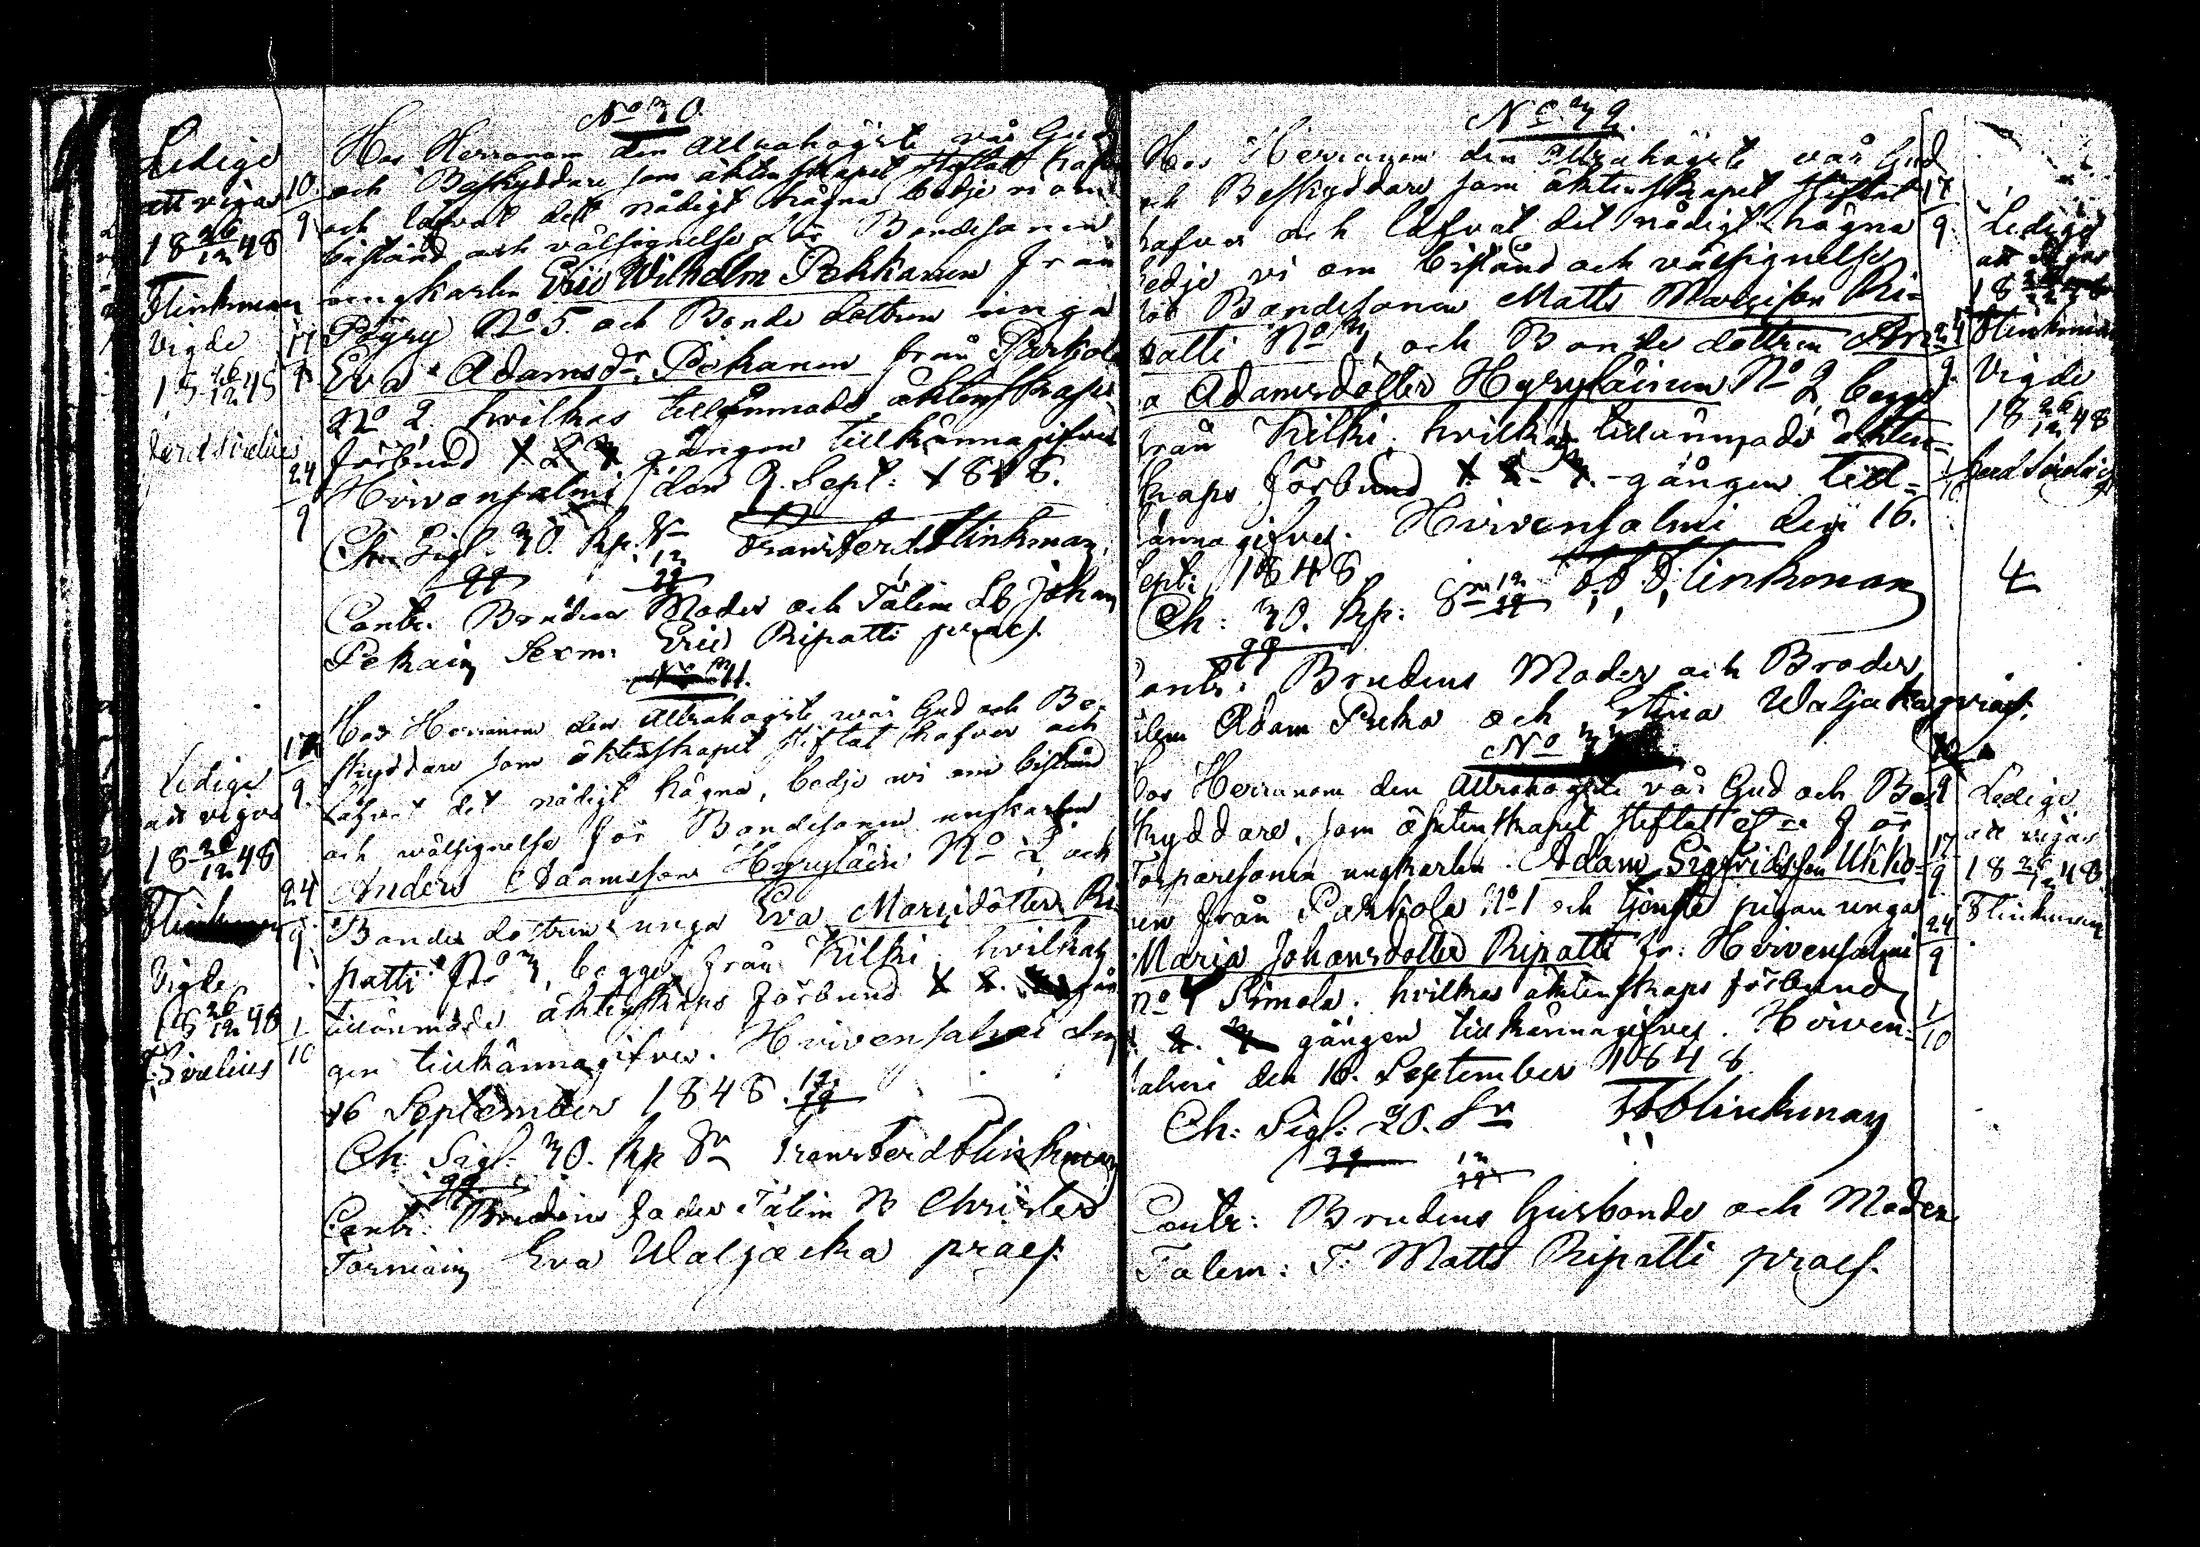 No 30.
Hos Herranom den Allrahögste vår Gud
och Beskyddare som äktenskapet stiftat hafver
och låfvat dett nådigt hägna bedje vi om
bistånd och välsignelse för Bondesonen
ungkarlen Eric Wilhelm Pekkanen från
Pöyry No 5 och Bonde dottren unga
Eva Adamsdr Pekanen från Parkola
No 2 hvilkas tillämnade äktenskaps
förbund 1. 2. 3. gången tillkännagifves
Hirvensalmi den 9. Sept: 1848.
Ch. Sigl. 30. Kp. Sr Frans Ferd. Flinkman
Contr. Brudens Moder och Tålem Lb Johan
Pekain Sexm: Eric Ripatti præs.
Ledige
att vigas
18 26/12 48
Flinkman
Vigde
18 26/12 48
Ferd Sirelius
10/9
17/9
24/9
No 31.
Hos Herranom den Allrahögste vår Gud och Be-
skyddare som äktenskapet stiftat hafver och
låfvat det nådigt hägna, bedje vi om bistånd
och wälsignelse för Bondesonen ungkarlen
Anders Adamsson Hyryläin No 2 och
Bonde dottren unga Eva Marcidotter Ri-
patti No 3, begge från Kilki, hvilkas
tillämnade äktenskaps förbund 1. 2. 3. gån-
gen tillkännagifves. Hirvensalmi den
16 September 1848. 12/29
Ch. Sigl. 30. Kp Sr Frans Ferd Flinkman
Contr. Brudens fader Tålem N Christer
Törmäin Eva Waljacka præs.
Ledige
att vigas
18 26/12 48
Flinkman
Vigde
18 26/12 48
F. Sirelius
17/9
24/9
1/10
No 32.
Hos Herranom den Allrahögste vår Gud
och Beskyddare som äktenskapet stiftat
hafver och låfvat det nådigt hägna
bedje vi om bistånd och välsignelse
för Bondesonen Matts Marcisson Ri-
patti No 3, och Bonde dottren Ann
a Adamsdotter Hyryläinen No 2 begge
från Kilki, hvilkas tillämnade äkten-
skaps förbund 1. 2. 3. gången till-
kännagifves. Hirvensalmi den 16.
Sept: 1848
Ch: 30. Kp: Sr 12/29 F. F. Flinkman
Contr: Brudens Moder och Broder
Tålem Adam Puka och Stina Waljacka præs.
17/9
24/9
1/10
Ledige
att vigas
Flinkman
Vigde
18 26/12 48
Ferd Sirelius
4
No 33
Hos Herranom den Allrahögste vår Gud och Be-
skyddare, som äktenskapet stiftat för
Torparesonen ungkarlen Adam Sigfridsson Ukko-
nen från Parkola No 1 och tjenste pigan unga
Maria Johansdotter Ripatti fr: Hirvensalmi
No 4 Simola. hvilkas äktenskaps förbund
1. 2. 3. gången tillkännagifves. Hirven-
salmi den 16. September 1848
Ch: Sigl: 20. Sr FF Flinkman
Contr: Brudens husbonde och Moder
Tålem: T: Matts Ripatti præs.
17/9
24/9
1/10
Ledige
att vigas
18 26/12 48
Flinkman